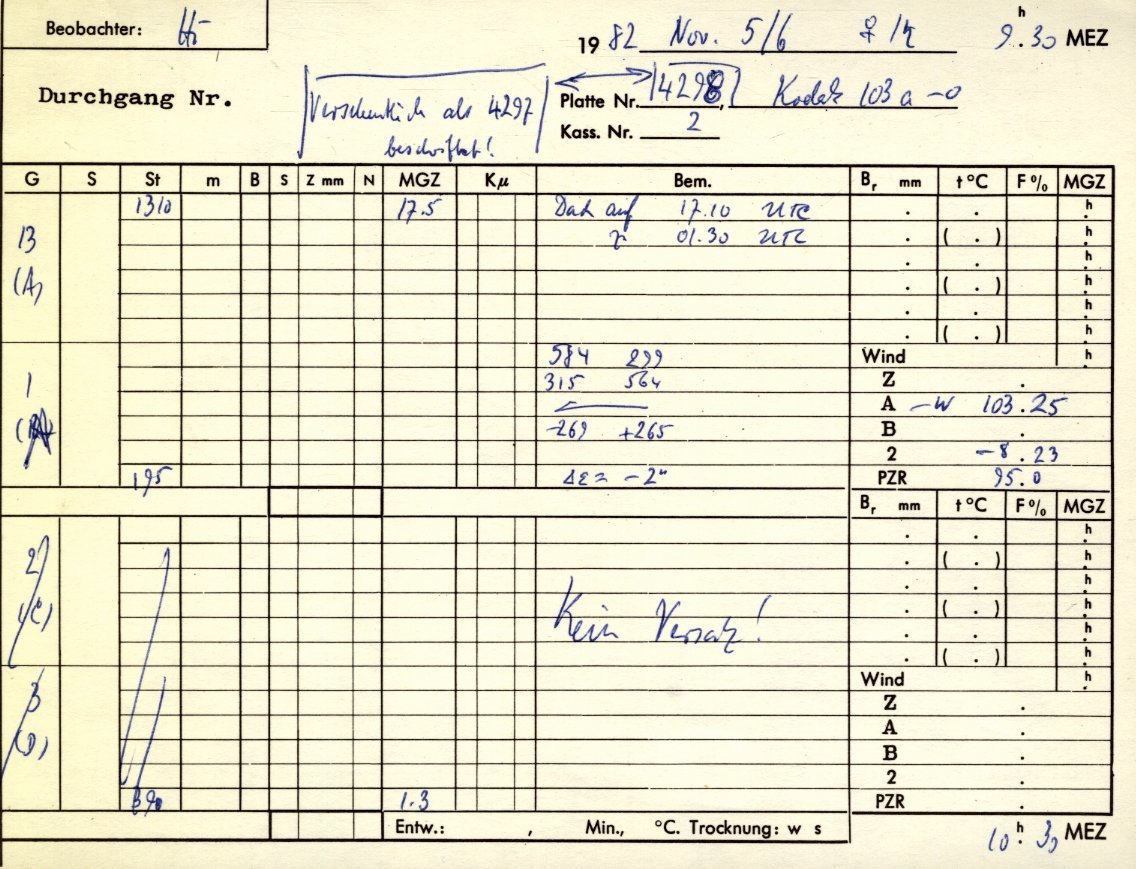 Beobachter: Hö
1982 Nov. 5/6 ♀/♄ 9.h30 MEZ
Durchgang Nr.
Versehentlich als 4297
beschriftet!
Platte Nr. 4298, Kodak 103 a-O
Kass. Nr. 2
G S St m B S Z mm N MGZ Kμ Bem. Br mm t °C F% MGZ
1310 17.5 Dach auf 17.10 UTC . . h
13 z 01.30 UTC . ( . ) h
. . h
(A) . ( . ) h
. . h
. ( . ) h
584 299 Wind h
1 315 564 Z .
A -W 103.25
-269 +265 B .
2 -8.23
195 Δε = -2" PZR 95.0
Br mm t °C F% MGZ
. . h
2 . ( . ) h
. . h
(C) . ( . ) h
Kein Versatz! . . h
. ( . ) h
Wind h
3 Z .
A .
(D) B .
2 .
390 1.3 PZR .
Entw.: , Min., °C. Trocknung: w s
10.h30 MEZ